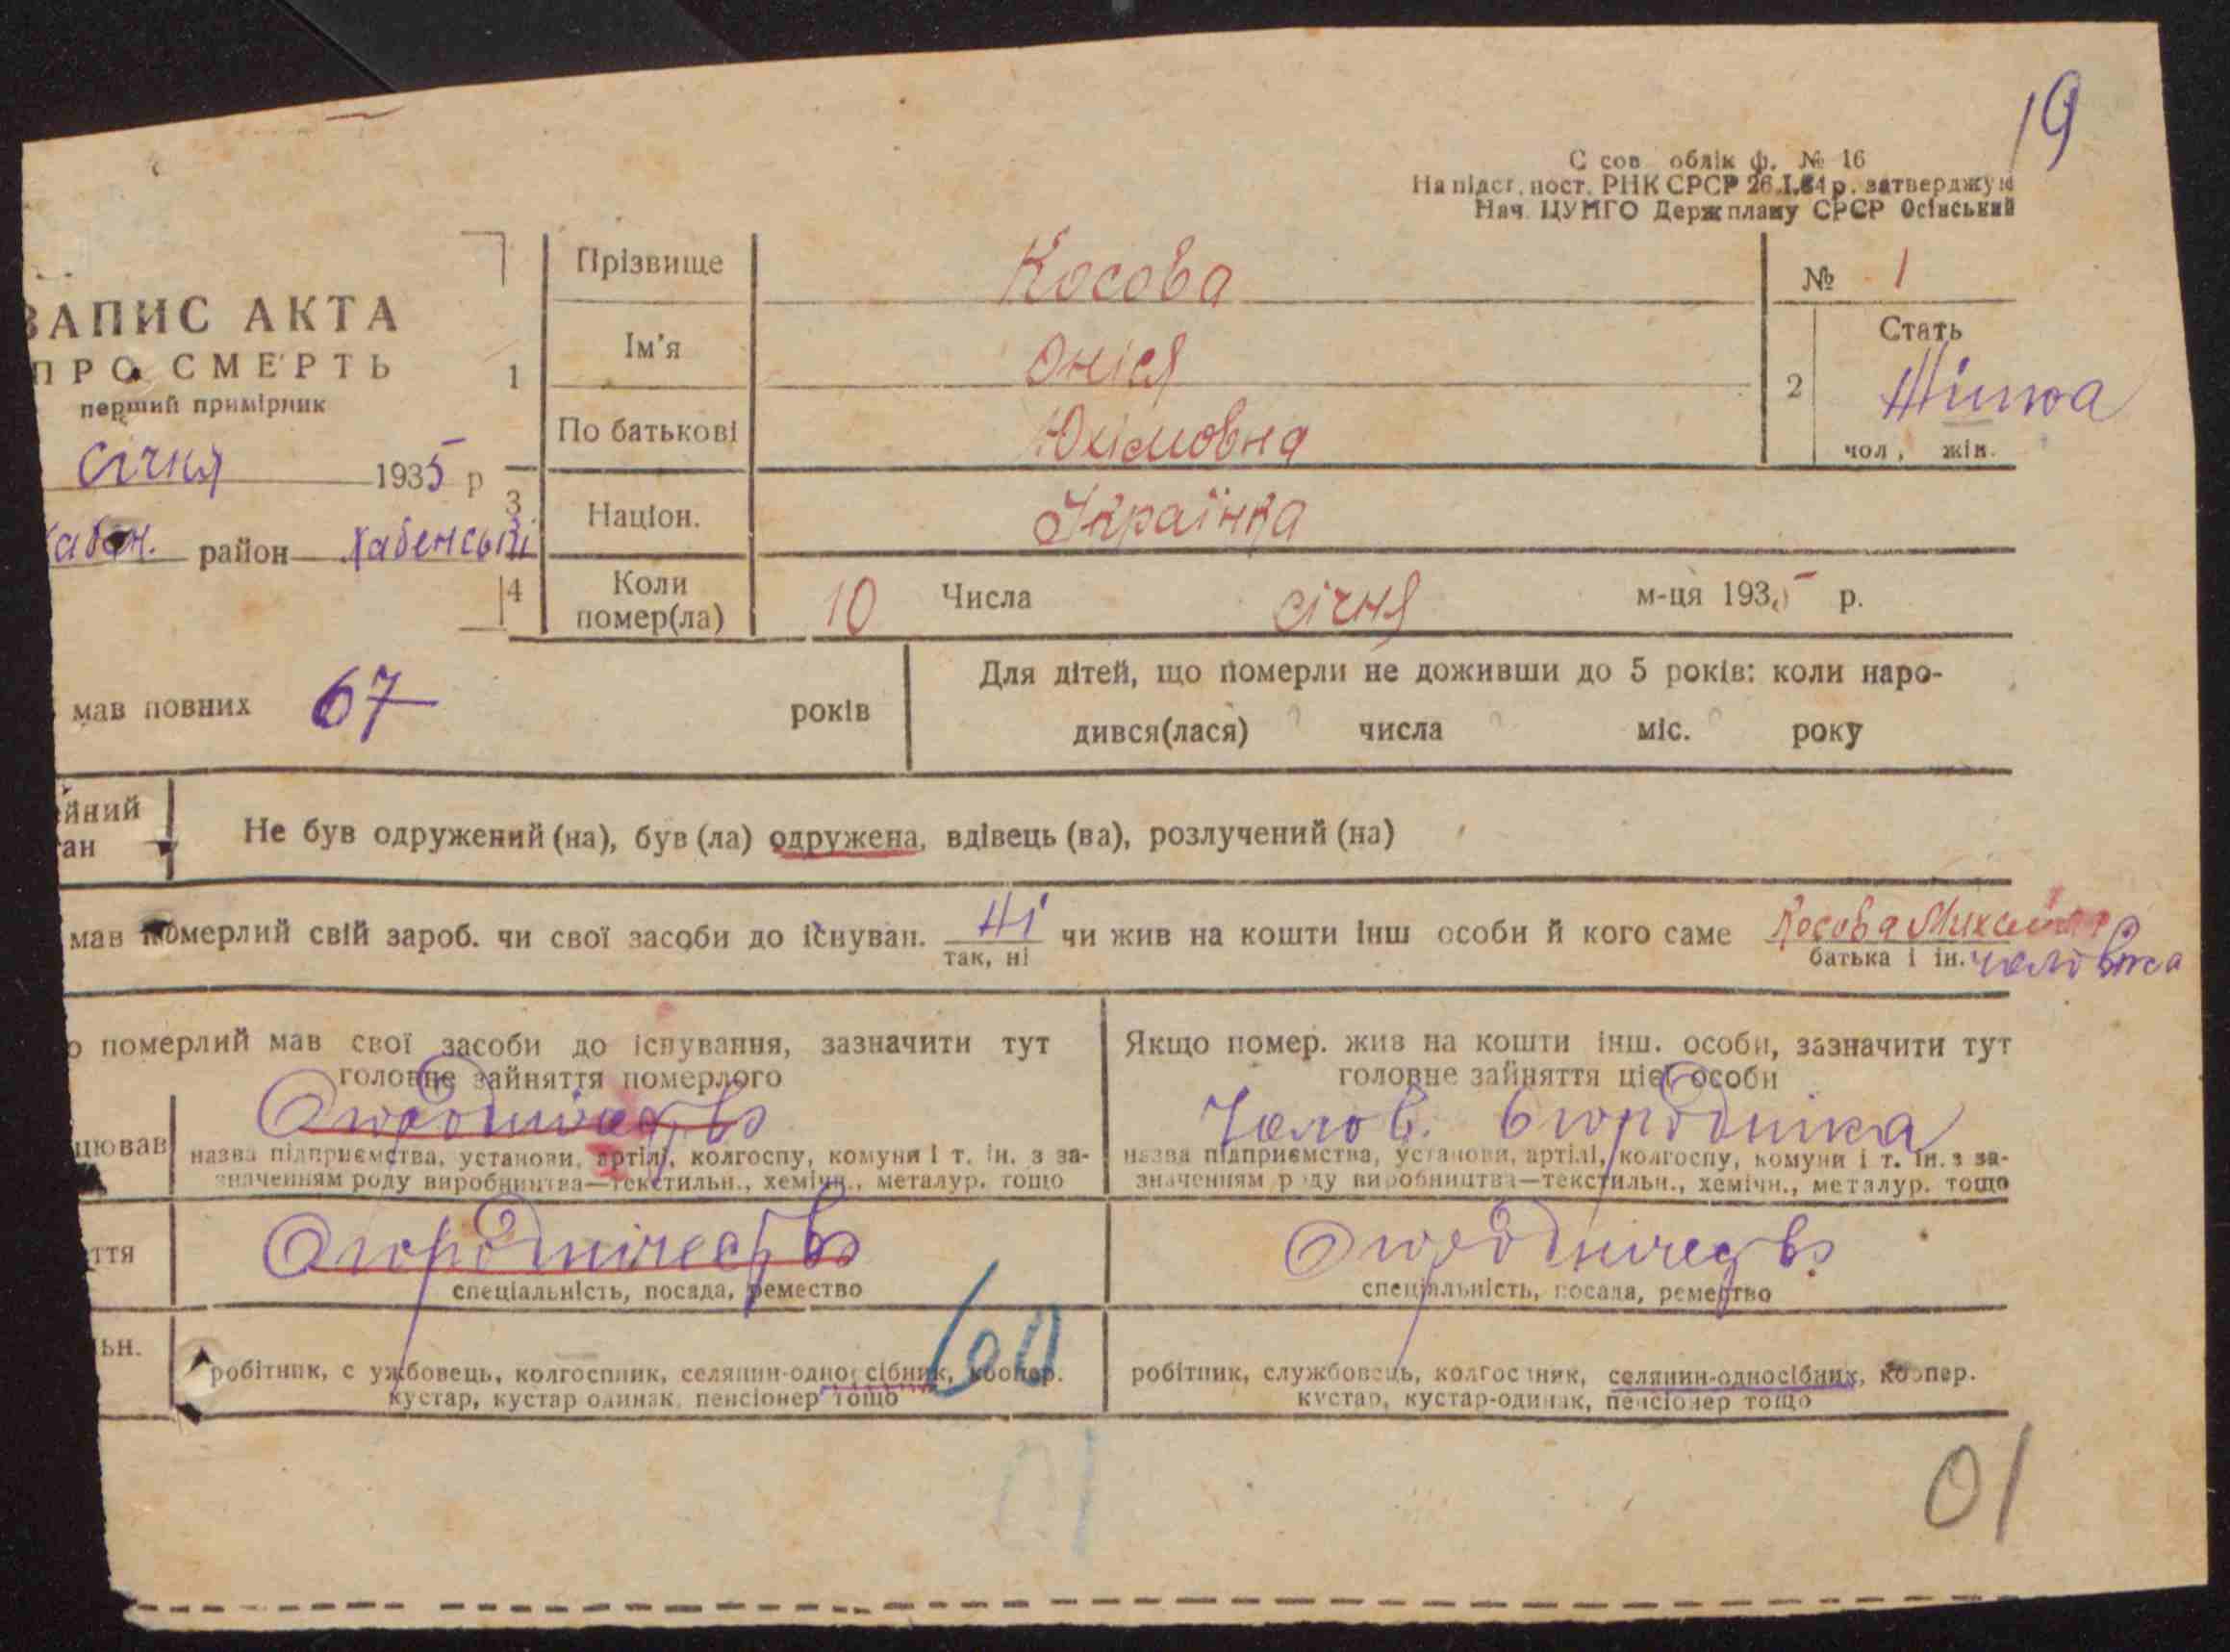 19
С сов облік ф. № 16
На підст. пост. РНК СРСР 26.I.34 р. затверджую
Нач. ЦУНГО Держплану СРСР Осінський
ЗАПИС АКТА
ПРО СМЕРТЬ
перший примірник
січня 1935 р
район Хабенський
1 Прізвище Косова
Ім'я Онися
По батькові Юхимовна
№ 1
2 Стать
Жінка
чол, жін.
3 Націон. Українка
4 Коли помер(ла) 10 Числа січня м-ця 1935 р.
мав повних 67 років
Для дітей, що померли не доживши до 5 років: коли наро-
дився(лася) числа міс. року
йний
ан
Не був одружений (на), був (ла) одружена, вдівець (ва), розлучений (на)
мав померлий свій зароб. чи свої засоби до існуван. Ні чи жив на кошти інш особи й кого саме Косова
так, ні
батька і ін. чоловіка
о померлий мав свої засоби до існування, зазначити тут
головне зайняття померлого
Якщо помер. жив на кошти інш. особи, зазначити тут
головне зайняття цієї особи
цював
назва підприємства, установи, артілі, колгоспу, комуни і т. ін. з за-
значенням роду виробництва—текстильн., хемічн., металур. тощо
Чолов. огородніка
назва підприємства, установи, артілі, колгоспу, комуни і т. ін. з за-
значенням роду виробництва—текстильн., хемічн., металур. тощо
ття
Огороднічество
спеціальність, посада, ремество
Огороднічество
спеціальність, посада, ремество
ьн.
робітник, с ужбовець, колгоспник, селянин-одноосібник, коопер.
кустар, кустар одинак, пенсіонер тощо
60
робітник, службовець, колгоспник, селянин-односібник, коопер.
кустар, кустар-одинак, пенсіонер тощо
01